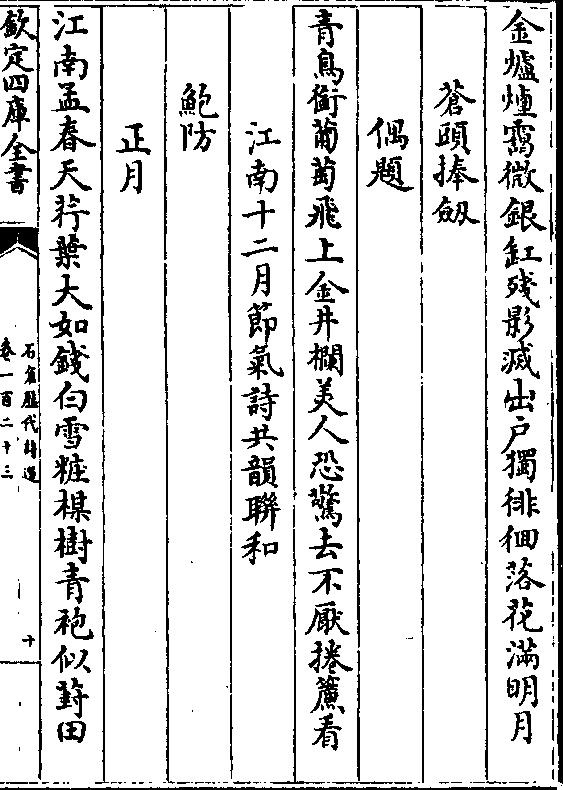 金爐煙靄微銀缸殘影滅出戶獨徘徊落花滿明月
蒼頭捧劔
偶題
青鳥銜葡萄飛上金井欄美人恐驚去不厭捲簾看
江南十二月節氣詩共韻聯和
鮑防
正月
江南孟春天荇葉大如錢白雪粧楳樹青袍似葑田
欽定四庫全書
石倉歷代詩選
卷一百二十三
十